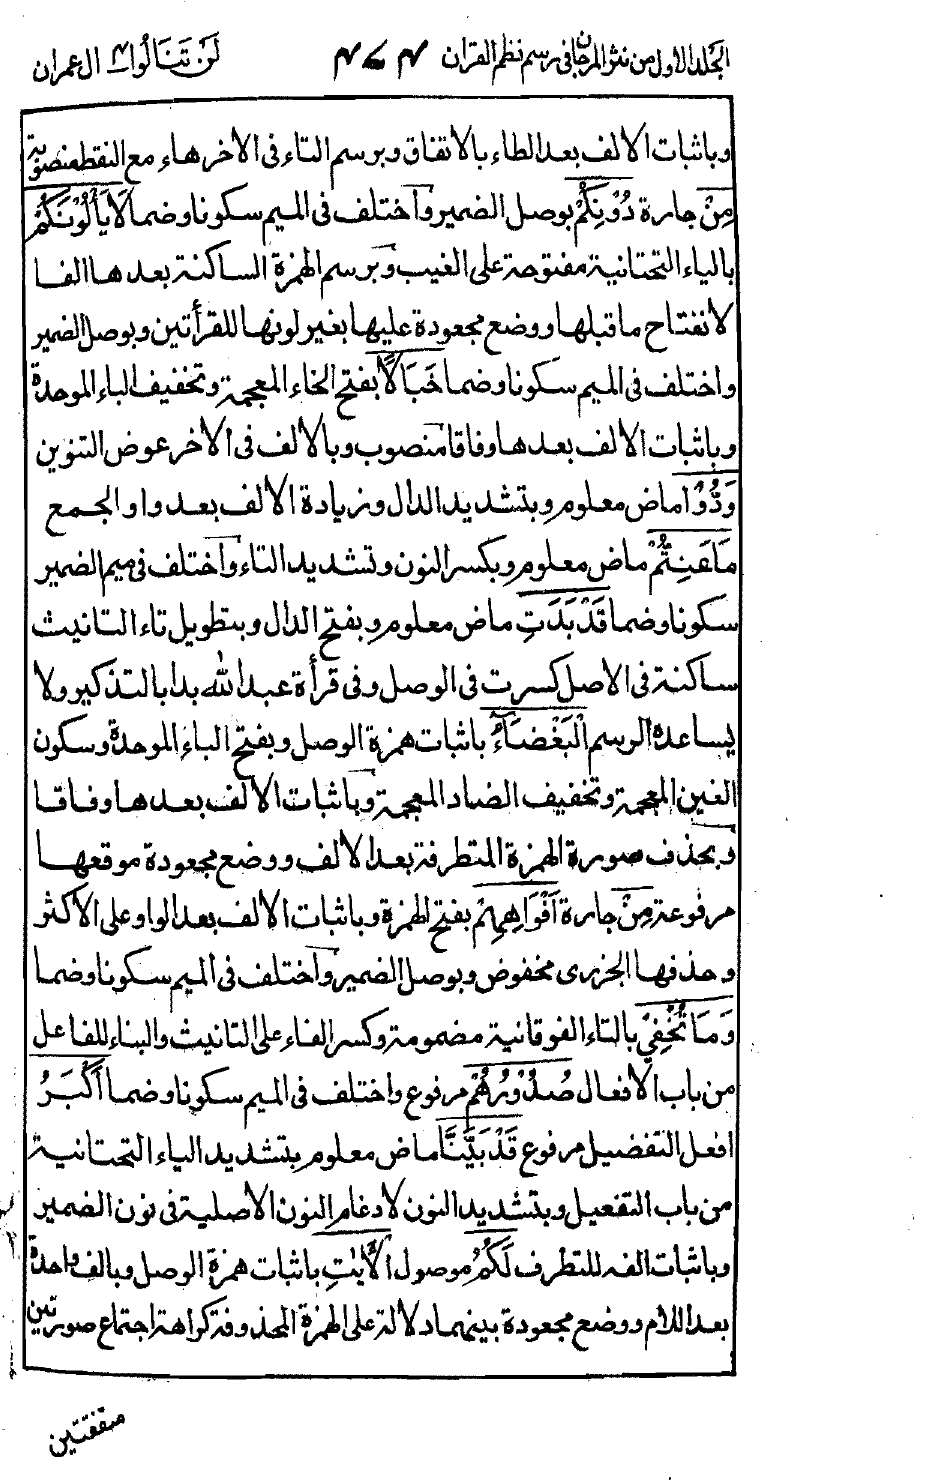 الجلد الاول من نثر المرجان فى رسم نظم القران ٤٧٤ لَنْ تَنَالُوا ٤ ال عمران
وباثبات الالف بعد الطاء بالاتفاق وبرسم التاء فى الاخر هاء مع النقط منصوبة
مِنْ جارة دُوْنِكُمْ بوصل الضمير واختلف فى الميم سكونا وضما لَا يَأْلُوْنَكُمْ
بالياء التحتانية مفتوحة على الغيب وبرسم الهمزة الساكنة بعدها الفا
لانفتاح ما قبلها ووضع مجعودة عليها بغير لونها للقرأتين وبوصل الضمير
واختلف فى الميم سكونا وضما خَبَالًا بفتح الخاء المعجمة وتخفيف الباء الموحدة
وباثبات الالف بعدها وفاقا منصوب وبالالف فى الاخر عوض التنوين
وَدُّوْا ماض معلوم وبتشديد الدال وزيادة الالف بعد واو الجمع
مَا عَنِتُّمْ ماض معلوم وبكسر النون وتشديد التاء واختلف فى ميم الضمير
سكونا وضما قَدْ بَدَتِ ماض معلوم وبفتح الدال وبتطويل تاء التانيث
ساكنة فى الاصل كسرت فى الوصل وفى قرأة عبد الله بدا بالتذكير ولا
يساعده الرسم الْبَغْضَآءُ باثبات همزة الوصل وبفتح الباء الموحدة وسكون
الغين المعجمة وتخفيف الضاد المعجمة وباثبات الالف بعدها وفاقا
وبحذف صورة الهمزة المتطرفة بعد الالف ووضع مجعودة موقعها
مرفوعة مِنْ جارة اَفْوَاهِهِمْ بفتح الهمزة وباثبات الالف بعد الواو على الاكثر
وحذفها الجزرى مخفوض وبوصل الضمير واختلف فى الميم سكونا وضما
وَمَا تُخْفِيْ بالتاء الفوقانية مضمومة وكسر الفاء على التانيث والبناء للفاعل
من باب الافعال صُدُوْرُهُمْ مرفوع واختلف فى الميم سكونا وضما اَكْبَرُ
افعل التفضيل مرفوع قَدْ بَيَّنَّا ماض معلوم بتشديد الياء التحتانية
من باب التفعيل وبتشديد النون لادغام النون الاصلية فى نون الضمير
وباثبات الفه للتطرف لَكُمُ موصول الْاٰيٰتِ باثبات همزة الوصل وبالف واحدة
بعد اللام ووضع مجعودة بينهما دلالة على الهمزة المحذوفة كراهة اجتماع صورتين
متفقتين